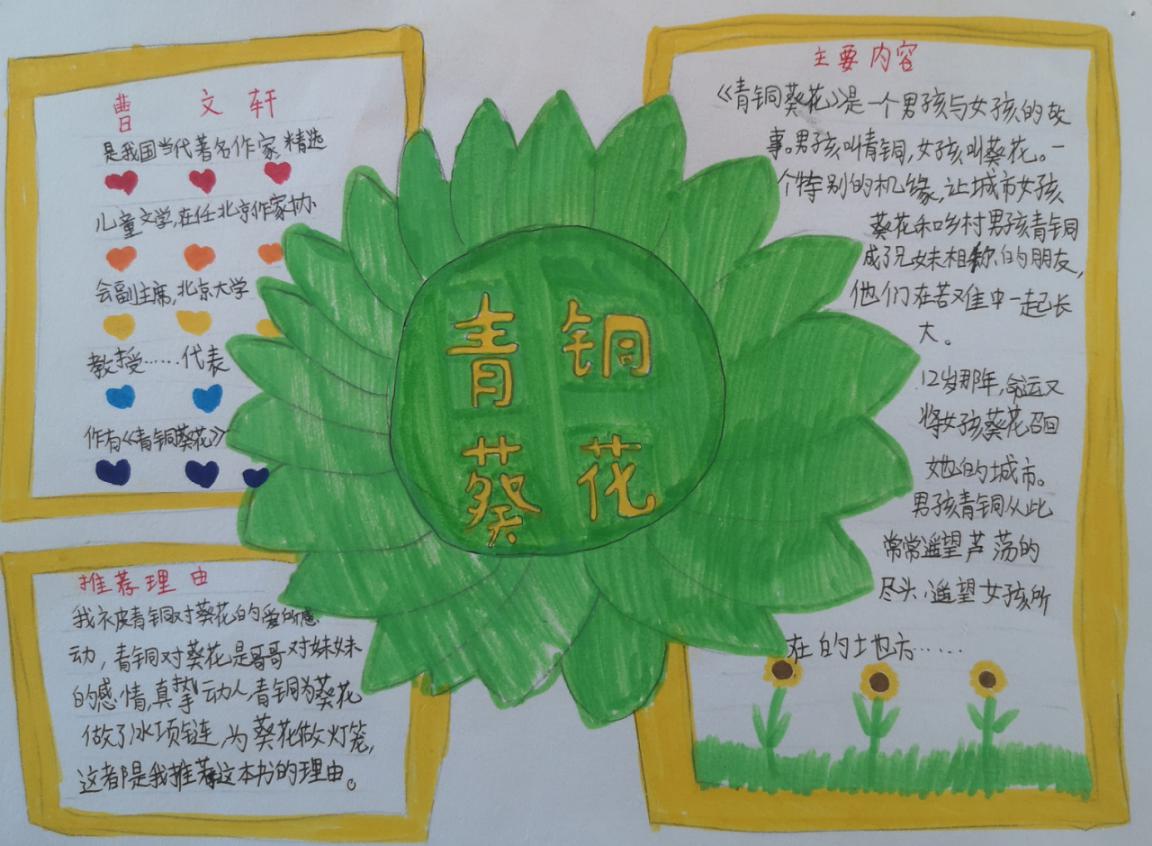 曹 文 轩
是我国当代著名作家,精选
儿童文学,在任北京作家协
会副主席,北京大学
教授……代表
作有《青铜葵花》
推荐理由
我衤皮青铜对葵花的爱所感
动,青铜对葵花是哥哥对妹妹
的感情,真挚动人,青铜为葵花
做了冰项链,为葵花做灯笼,
这者阝是我推荐这本书的理由。
青铜
葵花
主要内容
《青铜葵花》是一个男孩与女孩的故
事。男孩叫青铜,女孩叫葵花。一
个特别的机缘,让城市女孩
葵花和乡村男孩青铜
成了兄妹相称的朋友,
他们在苦难中一起长
大。
12岁那年,命运又
将女孩葵花召回
她的城市。
男孩青铜从此
常常遥望芦荡的
尽头,遥望女孩所
在的地方……